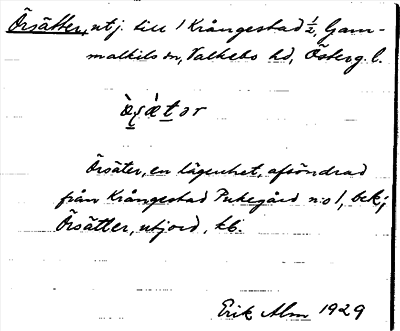 Örsätter, utj. till 1 Krångestad ½, Gam-
malkils sn, Valkebo hd, Österg. l.
Örsäter, en lägenhet, afsöndrad
från Krångestad Pukegård n:o 1, bek;
Örsätter, utjord, kb.
Erik Alm 1929